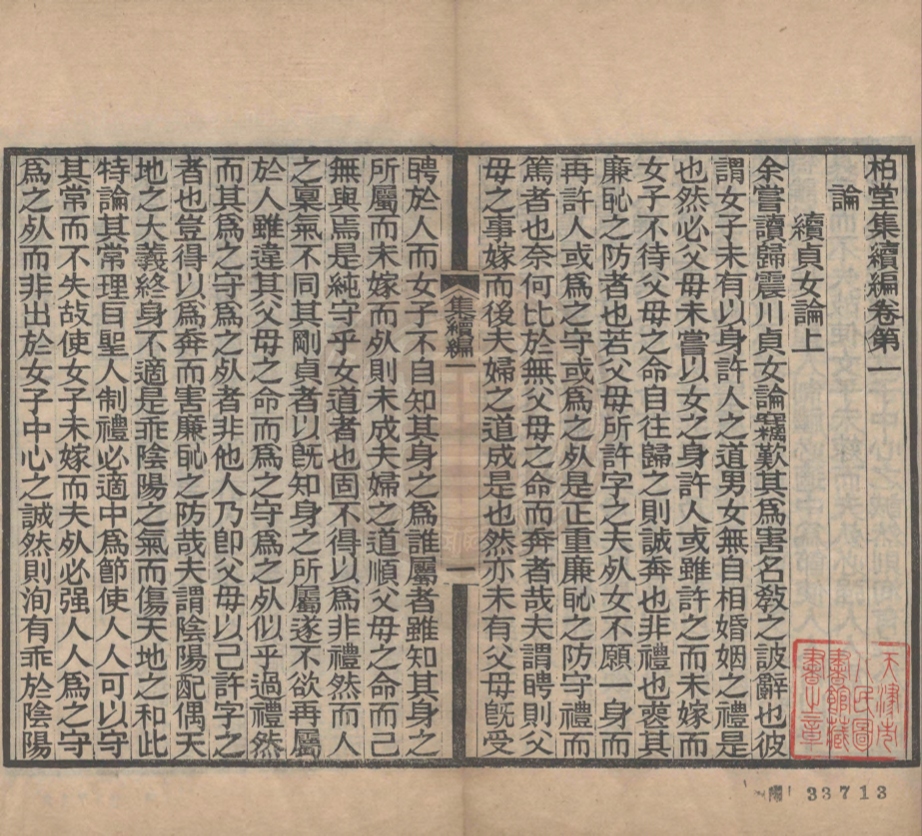 柏堂集續編卷第一
論
續貞女論上
余嘗讀歸震川貞女論竊歎其為害名教之詖辭也彼
謂女子未有以身許人之道男女無自相婚姻之禮是
也然必父母未嘗以女之身許人或雖許之而未嫁而
女子不待父母之命自往歸之則誠奔也非禮也喪其
廉恥之防者也若父母所許字之夫死女不願一身而
再許人或為之守或為之死是正重廉恥之防守禮而
篤者也奈何比於無父母之命而奔者哉夫謂聘則父
母之事嫁而後夫婦之道成是也然亦未有父母旣受
集續編一
一
聘於人而女子不自知其身之為誰屬者雖知其身之
所屬而未嫁而死則未成夫婦之道順父母之命而己
無與焉是純守乎女道者也固不得以為非禮然而人
之稟氣不同其剛貞者以旣知身之所屬遂不欲再屬
於人雖違其父母之命而為之守為之死似乎過禮然
而其為之守為之死者非他人乃卽父母以己許字之
者也豈得以為奔而害廉恥之防哉夫謂陰陽配偶天
地之大義終身不適是乖陰陽之氣而傷天地之和此
特論其常理百聖人制禮必適中為節使人人可以守
其常而不失故使女子未嫁而夫死必强人人為之守
為之死而非出於女子中心之誠然則洵有乖於陰陽
天津市
人民圖
書館藏
書之章
33713